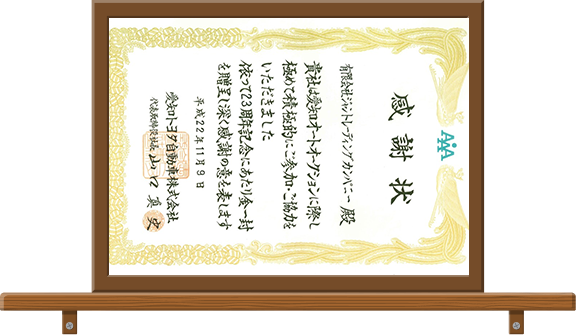 AAA
感謝状
有限会社 トレーディングカンパニー 殿
貴社は愛知オートオークションに際し
極めて積極的にご参加・ご協力を
いただきました
依って23周年記念にあたり金一封
を贈呈し深く感謝の意を表します
平成22年11月9日
愛知トヨタ自動車株式会社
代表取締役社長 山口真史